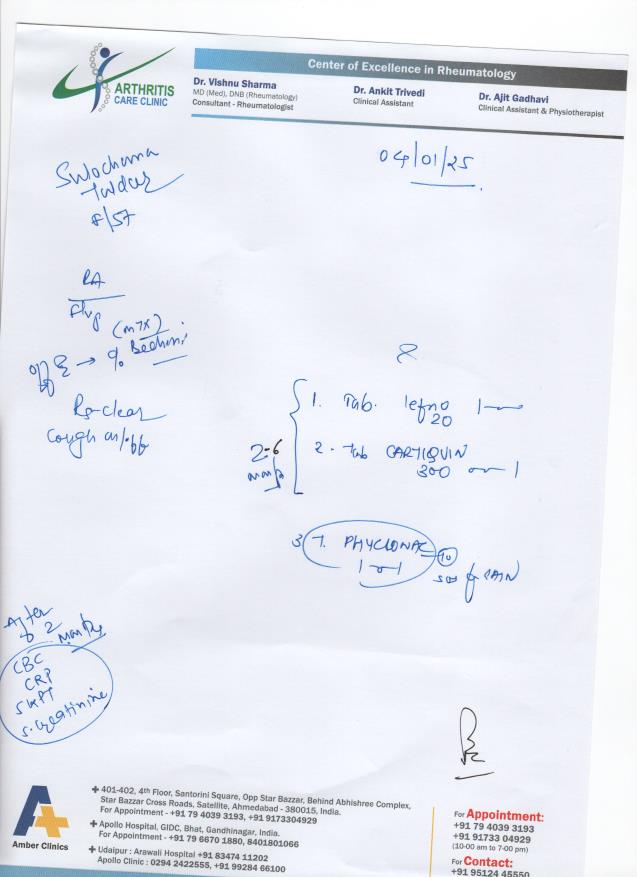 ARTHRITIS
CARE CLINIC
Center of Excellence in Rheumatology
Dr. Vishnu Sharma
MD (Med), DNB (Rheumatology)
Consultant - Rheumatologist
Dr. Ankit Trivedi
Clinical Assistant
Dr. Ajit Gadhavi
Clinical Assistant & Physiotherapist
04/01/25
RA
(MTX)
Rs-clear
Cough
1. Tab. lefno 1
20
2. Tab CARTIQUIN
300 1
2-6
3 T. PHYCLONAC
1 1
PAIN
After
2
CBC
CRP
SGPT
S. Creatinine
A+
Amber Clinics
401-402, 4th Floor, Santorini Square, Opp Star Bazzar, Behind Abhishree Complex,
Star Bazzar Cross Roads, Satellite, Ahmedabad - 380015, India.
For Appointment - +91 79 4039 3193, +91 9173304929
Apollo Hospital, GIDC, Bhat, Gandhinagar, India.
For Appointment - +91 79 6670 1880, 8401801066
Udaipur : Arawali Hospital +91 83474 11202
Apollo Clinic : 0294 2422555, +91 99284 66100
For Appointment:
+91 79 4039 3193
+91 91733 04929
(10-00 am to 7-00 pm)
For Contact:
+91 95124 45550